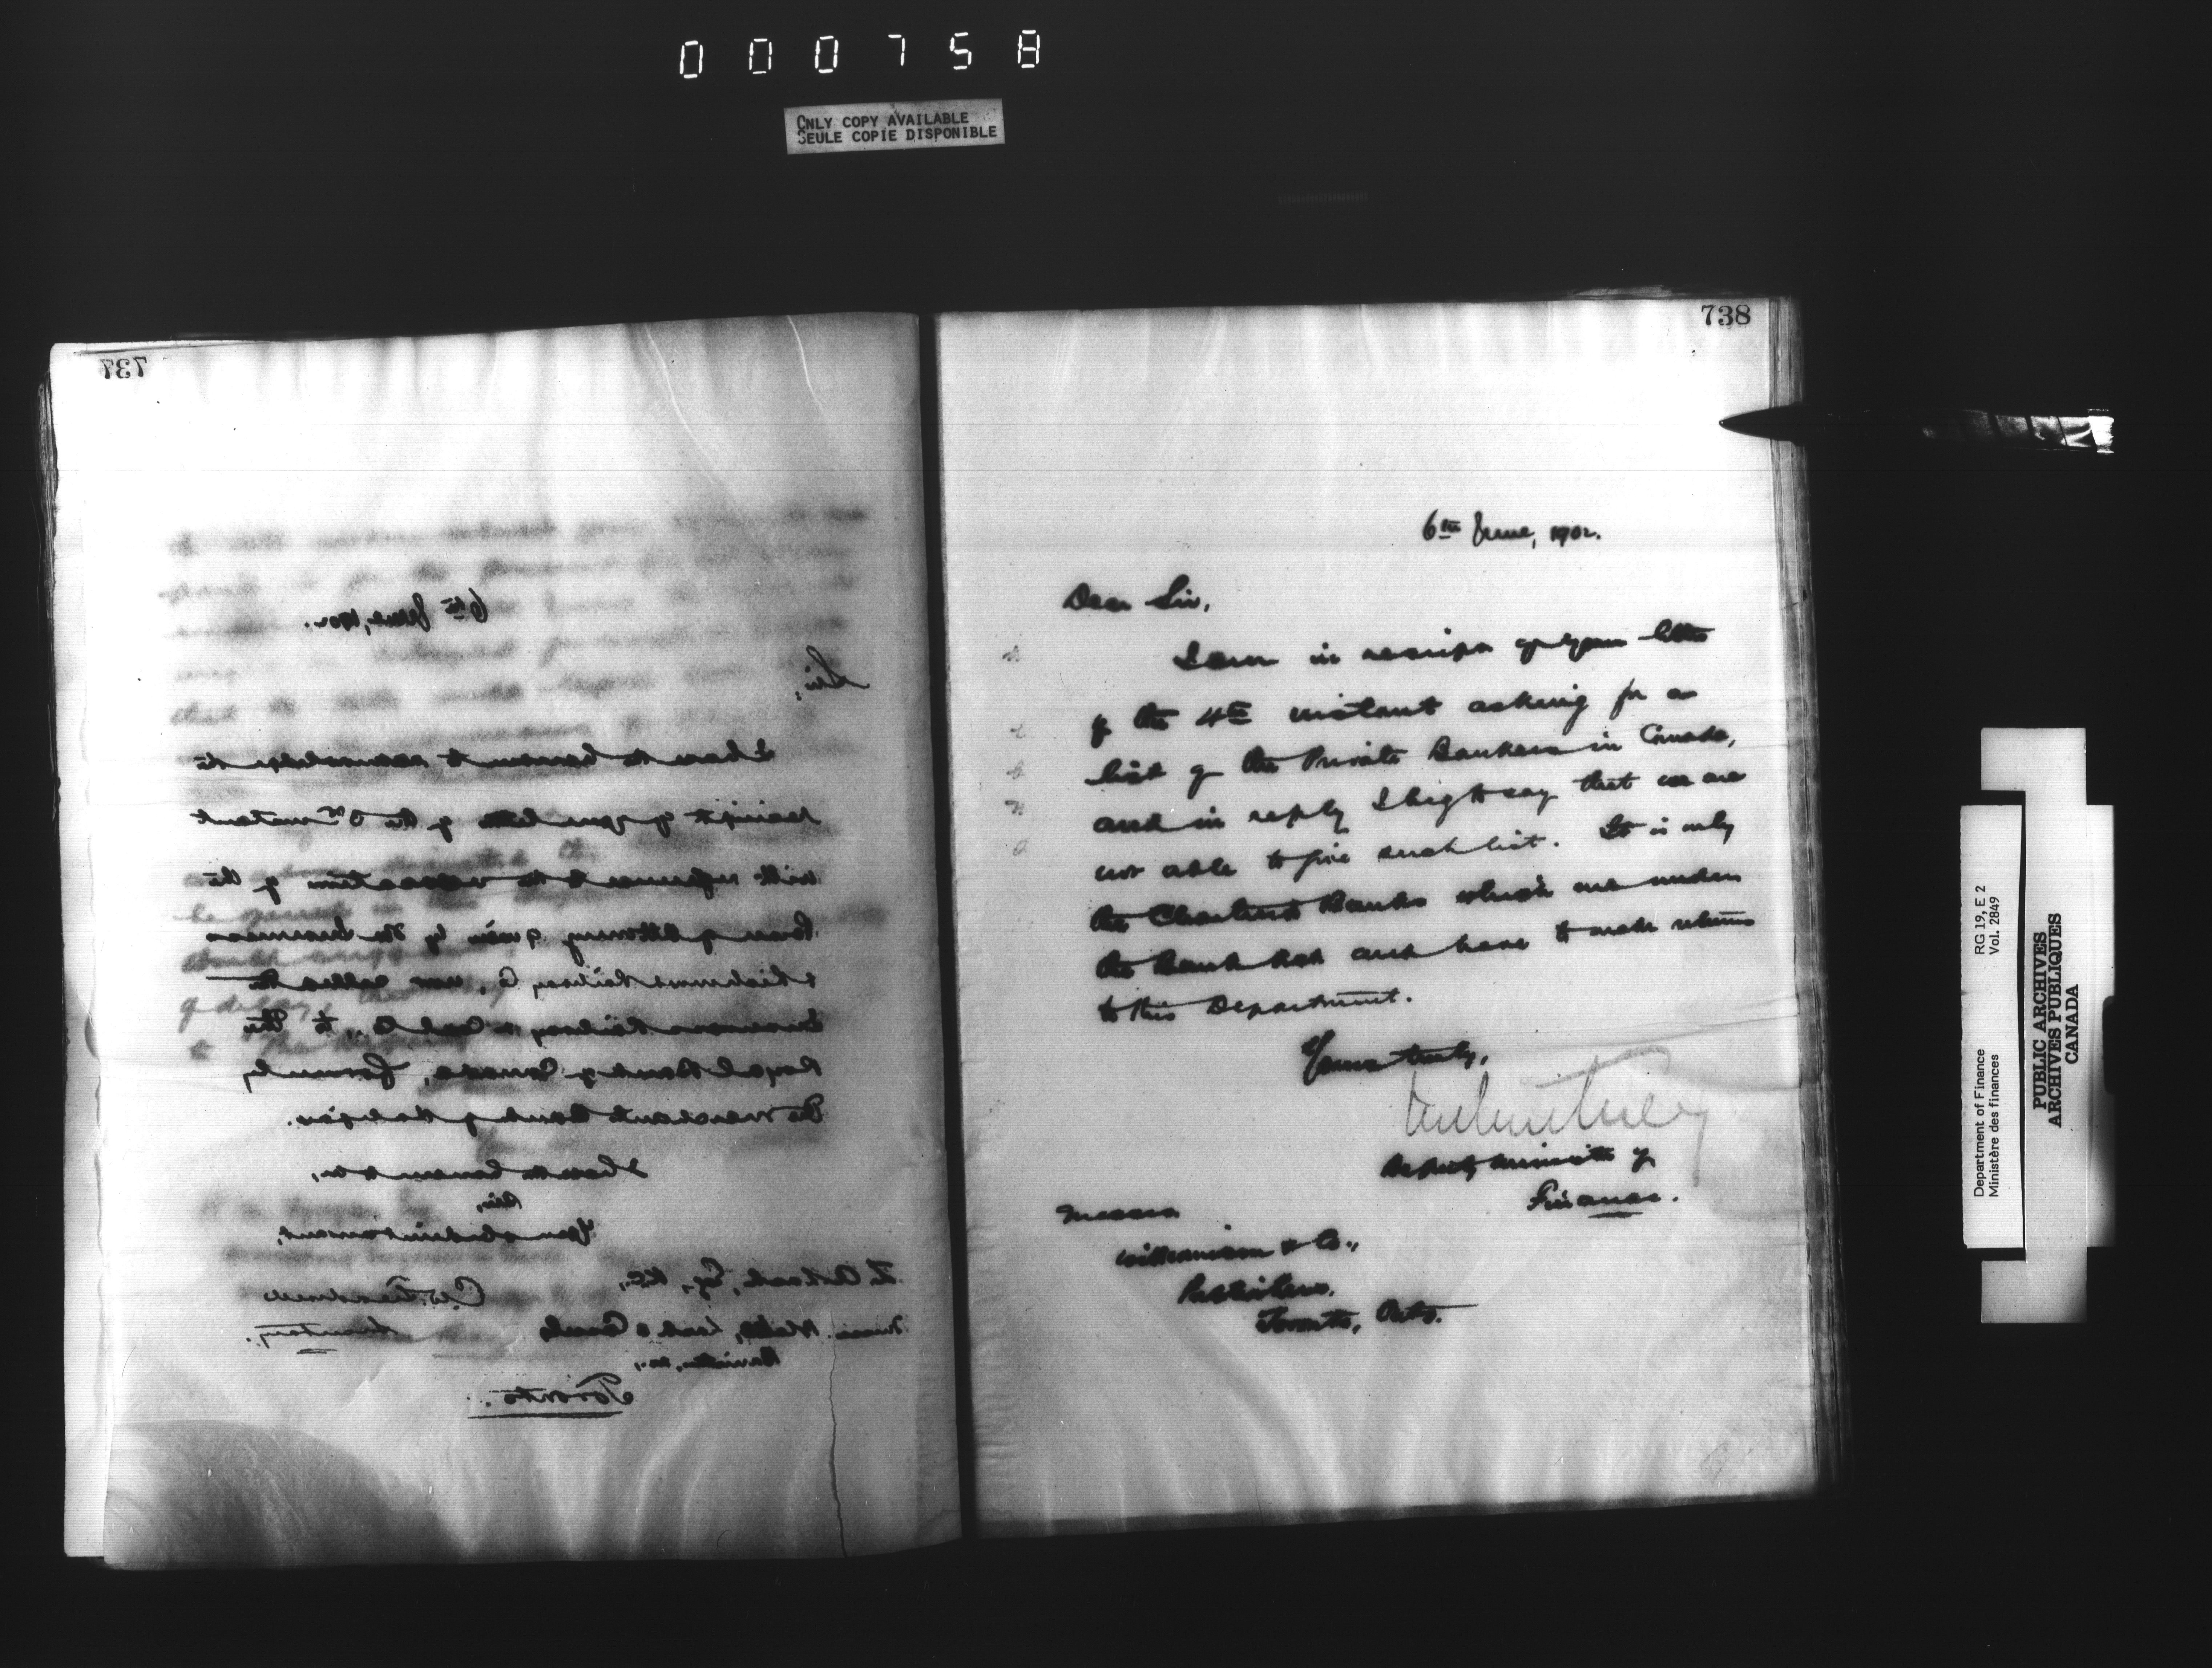 000758
ONLY COPY AVAILABLE
SEULE COPIE DISPONIBLE
737
6th June, 1902.
Sir,
I have the honour to acknowledge the
receipt of your letter of the 5th instant
with reference to the revocation of the
Power of Attorney given by the Inverness
& Richmond Railway Co., now called the
Inverness Railway & Coal Co., to the
Royal Bank of Canada, formerly
the Merchants Bank of Halifax.
I have the honour to be,
Sir,
Your obedient servant,
Z. A. Lash, Esq., K.C.,
Messrs. Blake, Lash & Cassels
Secretary.
Barristers, &c.,
Toronto.
738
6th June, 1902.
Dear Sir,
I am in receipt of your letter
of the 4th instant asking for a
list of the Private Bankers in Canada,
and in reply I beg to say that we are
not able to give such list. It is only
the Chartered Banks which are under
the Bank Act and have to make returns
to this Department.
Yours truly,
Deputy Minister of
Finance.
Messrs
Williamson & Co.,
Publishers,
Toronto, Ont.
Department of Finance
Ministère des finances
RG 19, E 2
Vol. 2849
PUBLIC ARCHIVES
ARCHIVES PUBLIQUES
CANADA